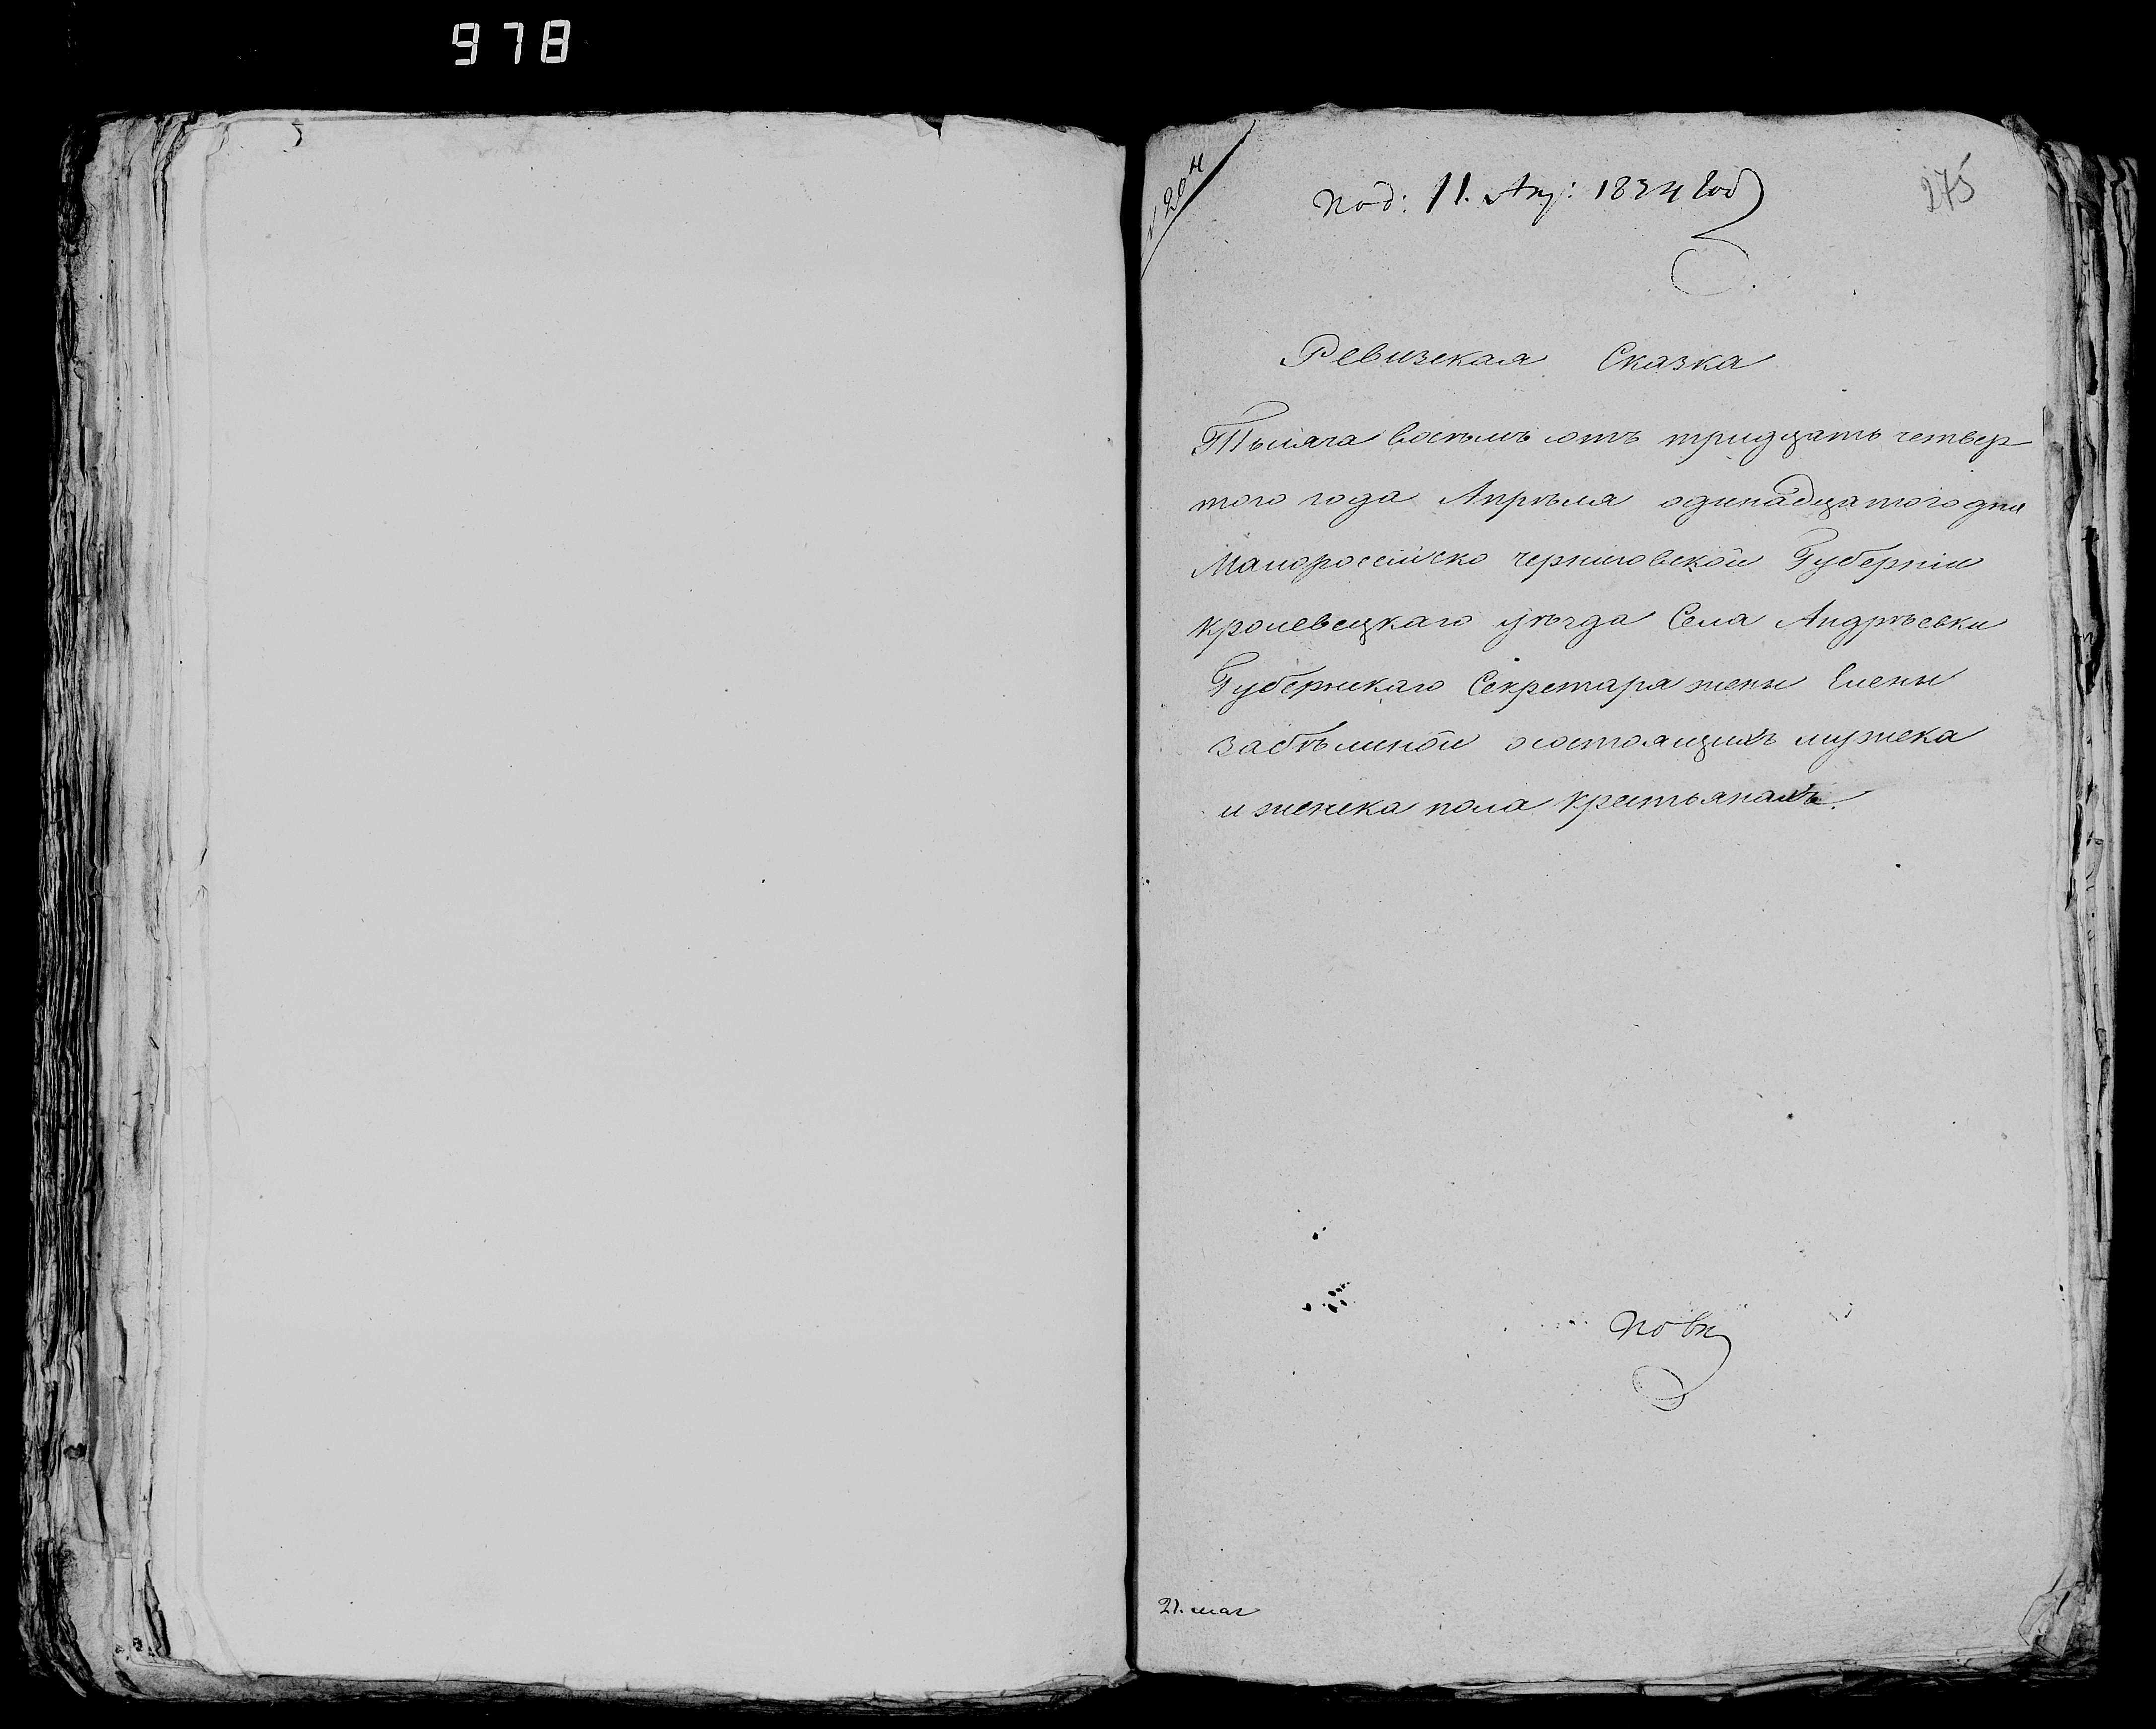 978
№ 204
под: 11. Апр: 1834 Год
275
Ревизская Сказка
Тысяча восемь сотъ тридцать четвер
того года Апрѣля одинадцатого дня
Малороссійско черниговской Губерніи
кролевецкаго уѣзда Села Андрѣевки
Губернскаго Секретаря жены Елены
Забѣлиной о состоящихъ мужска
и женска пола крестьянахъ.